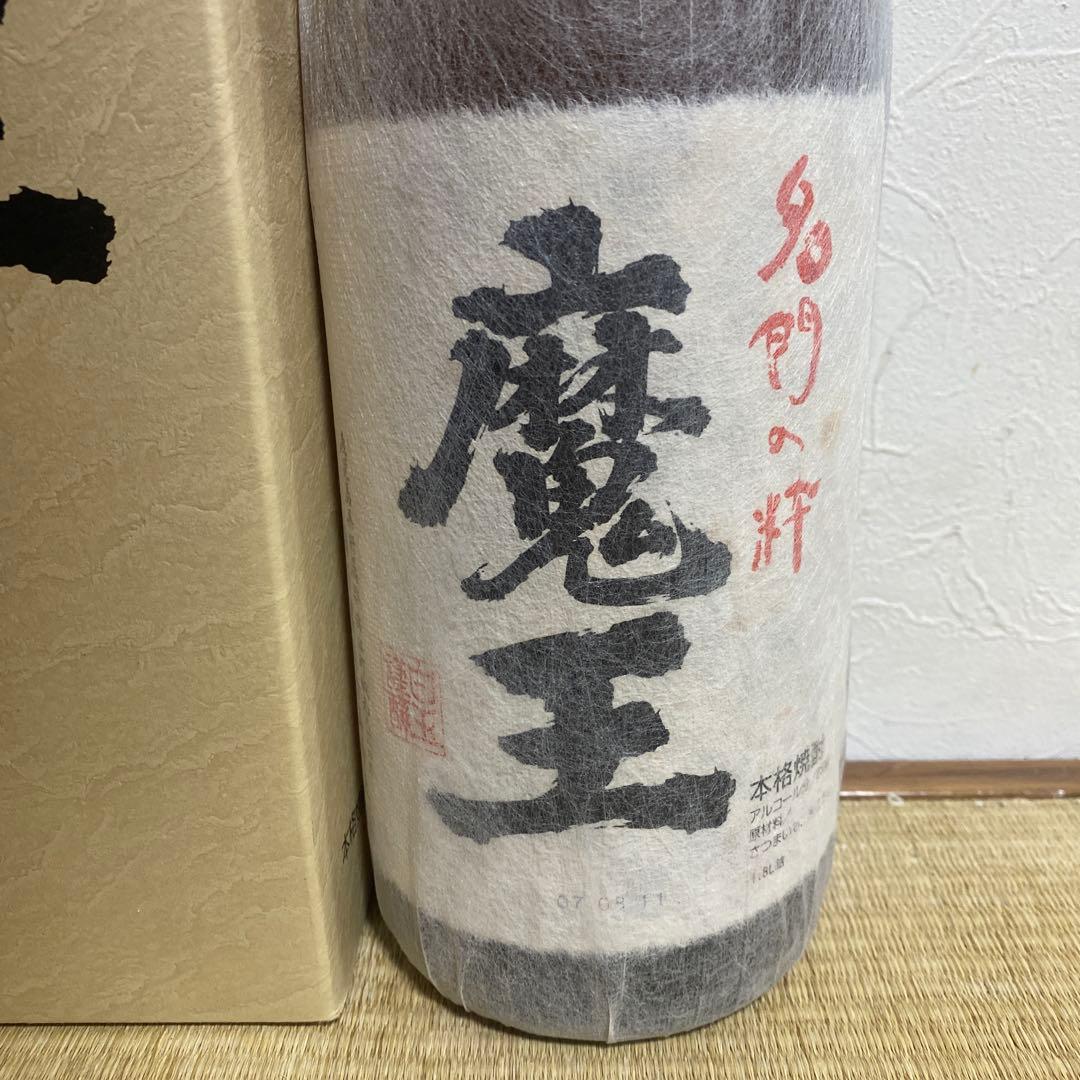 名門の粋
魔王
本格焼酎
アルコール分
原材料／
さつまいも、
1.8L詰
07.08.11
本格